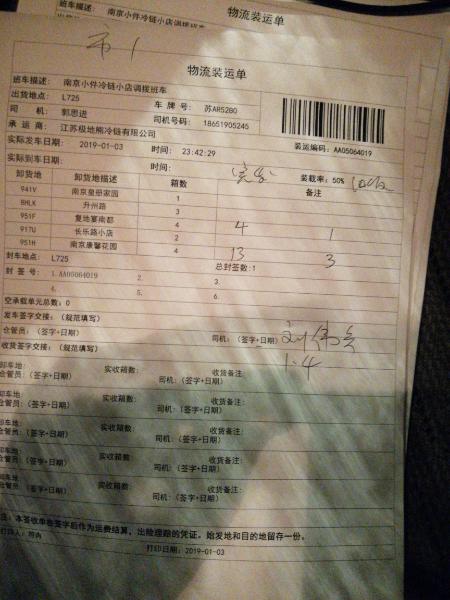 班车描述: 南京小件冷链小店调拨班车
物流装运单
市1
物流装运单
班车描述: 南京小件冷链小店调拨班车
出货地点: L725
车 牌 号: 苏AR5280
司 机: 郭思进
司机号码: 18651905245
装运编码: AA05064019
承 运 商: 江苏极地熊冷链有限公司
实际发车日期: 2019-01-03 时间: 23:42:29
装载率: 50%
实际到车日期: 时间:
卸货地 卸货地描述 箱数 备注
941V 南京皇册家园 1
BHLK 升州路 3
951F 复地宴南都 4 4 1
917U 长乐路小店 2
951H 南京康馨花园 4 13 3
封车地点: L725 总封签数:1
封 签 号: 1.AA05064019 2. 3.
4. 5. 6.
空承载单元总数: 0
发车签字交接: (规范填写)
仓管员: (签字+日期) 司机: (签字+日期)
1.4
收货签字交接: (规范填写)
卸车地: 实收箱数: 收货备注:
仓管员: (签字+日期) 司机: (签字+日期)
卸车地: 实收箱数: 收货备注:
仓管员: (签字+日期) 司机: (签字+日期)
卸车地: 实收箱数: 收货备注:
仓管员: (签字+日期) 司机: (签字+日期)
卸车地: 实收箱数: 收货备注:
仓管员: (签字+日期) 司机: (签字+日期)
注: 本签收单经签字后作为运费结算, 出险理赔的凭证。始发地和目的地留存一份。
打印日期: 2019-01-03